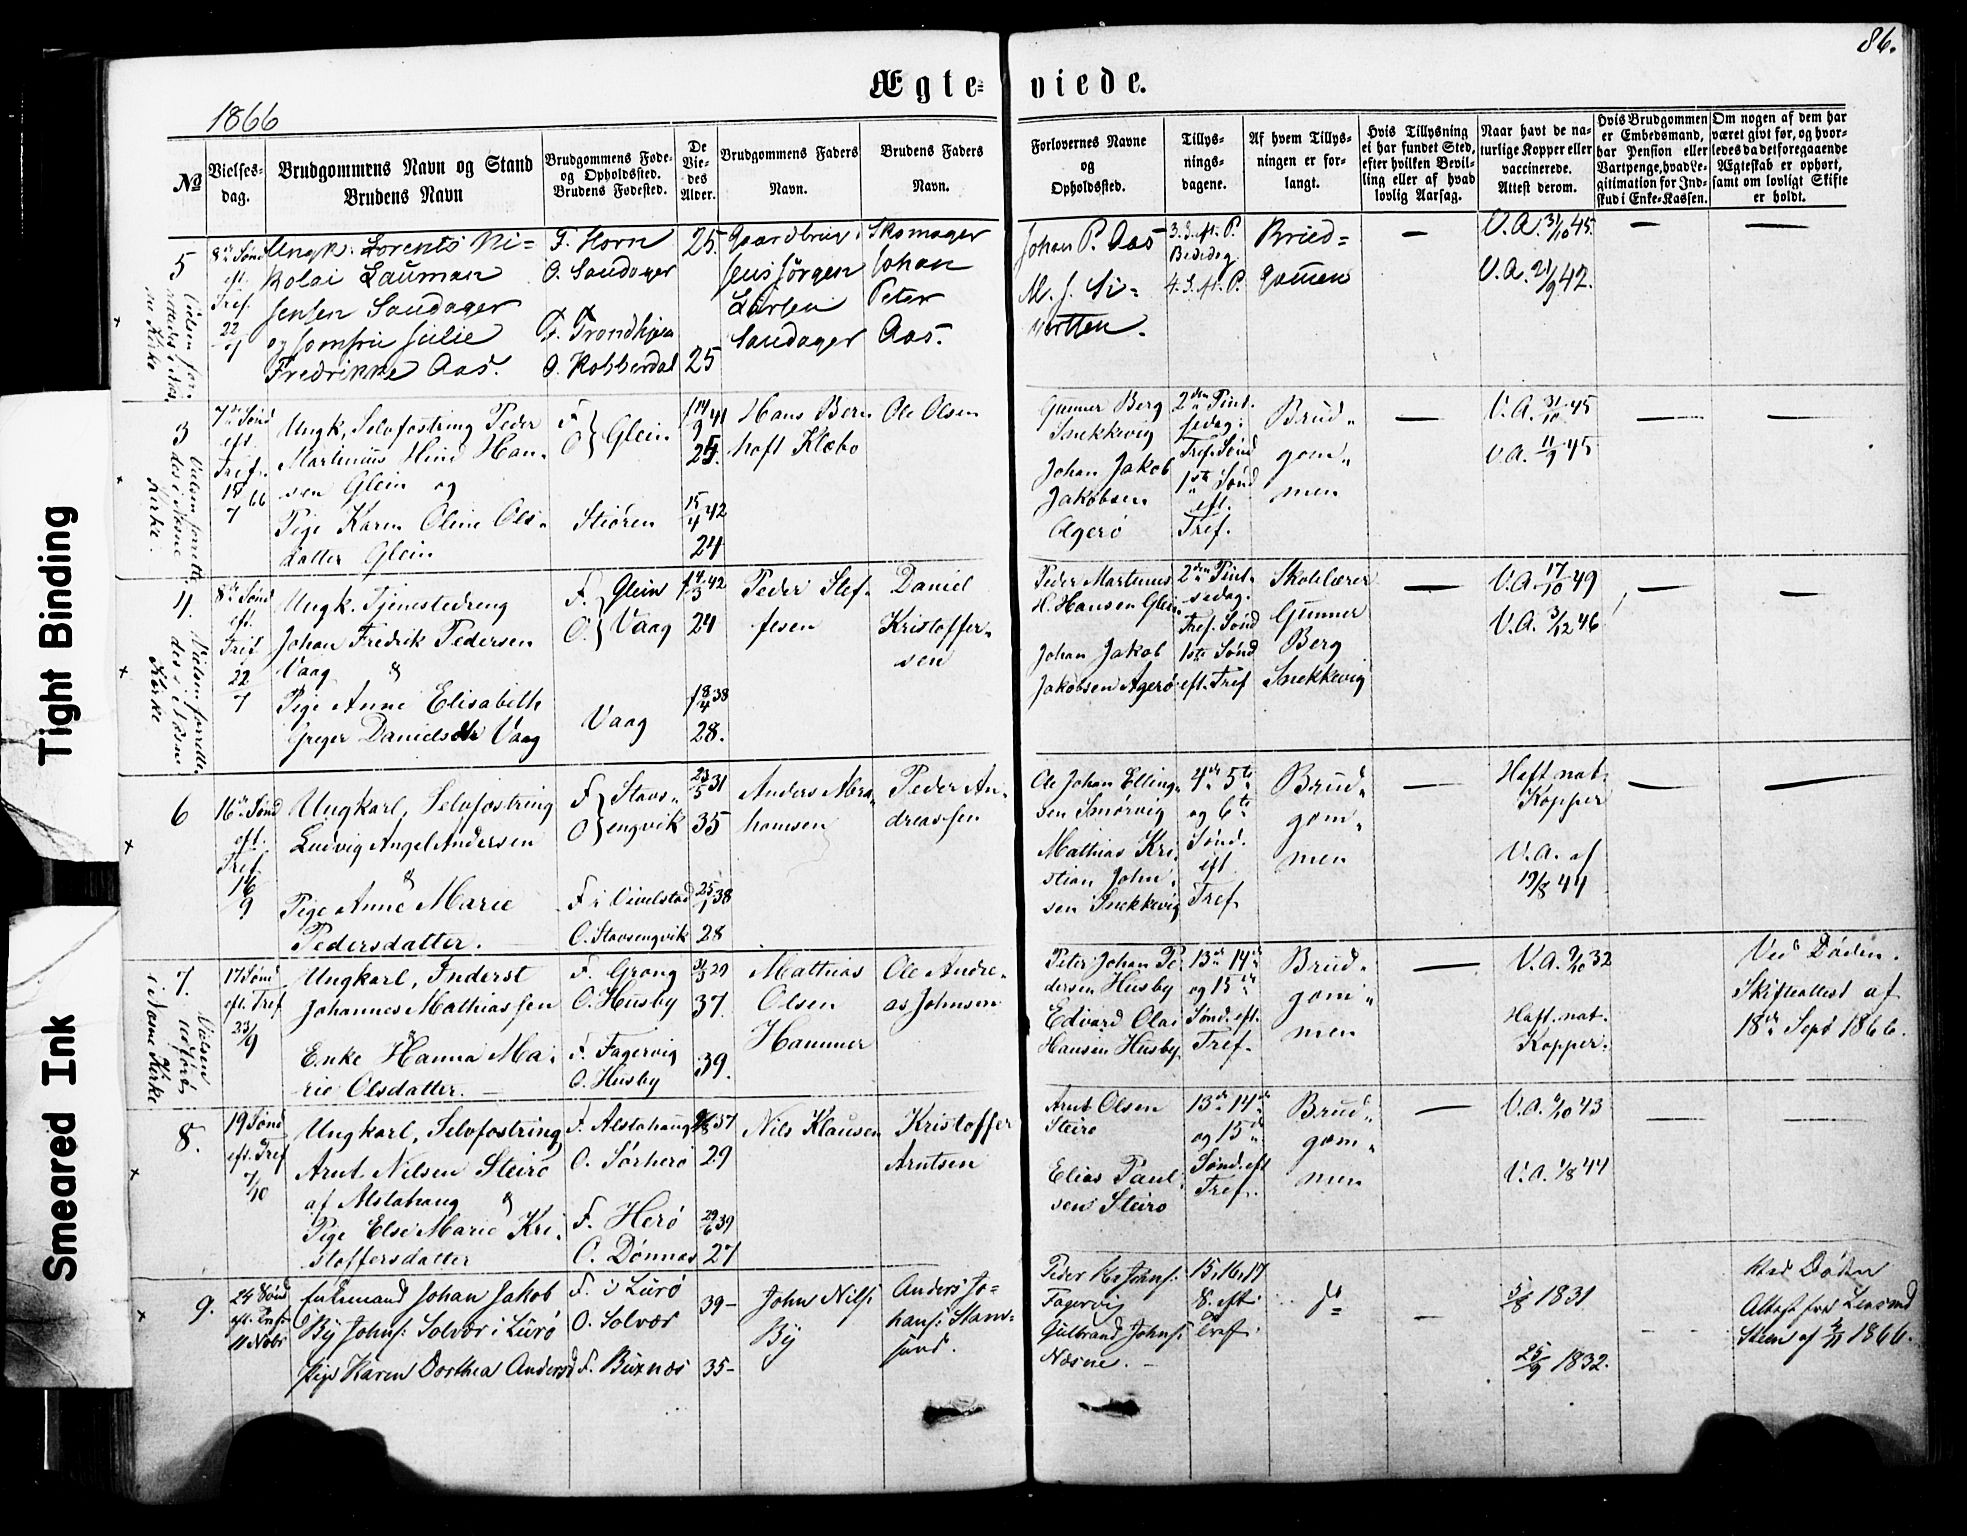 86.
Ægte= viede.
1866
No
Vielses-
dag.
Brudgommens Navn og Stand
Brudens Navn
Brudgommens Føde-
og Opholdssted.
Brudens Fødested.
De
Vie-
des
Alder.
Brudgommens Faders
Navn.
Brudens Faders
Navn.
Forlovernes Navne
og
Opholdssted.
Tillys-
nings-
dagene.
Af hvem Tillys-
ningen er for-
langt.
Hvis Tillysning
ei har fundet Sted,
efter hvilken Bevil-
ling eller af hvad
lovlig Aarsag.
Naar havt de na-
turlige Kopper eller
vaccinerede.
Attest derom.
Hvis Brudgommen
er Embedsmand,
har Pension eller
Vartpenge, hvad Le-
gitimation for Ind-
skud i Enke-Kassen.
Om nogen af dem har
været givt før, og hvor-
ledes da det foregaaende
Ægteskab er ophørt,
samt om lovligt Skifte
er holdt.
5
8de Sønd
eft.
Tref.
22/7
Ungk: Lorents Ni=
kolai Lauman
Jensen Sandager
og Jomfru Julie
Fredrikke Aas.
F. Horn
O. Sandager
F. Trondhjem
O. Kobberdal
25.
25
Gaardbrug.
Jens Jørgen
Larsen
Sandager
Skomager
Johan
Peter
Aas.
Johan P. Aas
M. J. Si=
vertsen.
3. S. ft. P.
Bededag
4. S. ft. P.
Brud=
gommen
—
V. A. 31/10 45.
V. A. 21/9 42.
—
—
3
7de Sønd
eft.
Tref.
15/7 66
Ungk, Selvfostring Peder
Martinus Hind Han-
sen Glein og
Pige Karen Oline Ols-
datter Glein
F
O } Glein
Stiøren
f 14/9 41
25.
15/4 42
24
Hans Bern
hoft Klæbo
Ole Olsen
Gunner Berg
Snekkevig
Johan Jakob
Jakobsen
Agerø
2den Pint-
sedag:
Tref. Sønd
1ste Sønd
eft.
Tref.
Brud-
gom-
men
—
V. A. 31/10 45
V. A. 11/9 45
—
—
4.
8de Sønd
eft.
Tref
22/7
Ungk. Tjenestedreng
Johan Fredrik Pedersen
Vaag &
Pige Anne Elisabeth
Greger Danielsdtr Vaag
F. Glein
O. } Vaag
Vaag
f 4/3 42
24
f 18/4 38
28.
Peder Stef-
fesen
Daniel
Kristoffer-
sen
Peder Martinus
H. Hansen Glein
Johan Jakob
Jakobsen Agerø
2den Pint-
sedag.
Tref. Sønd
1ste Sønd
eft. Tref
Skolelærer
Gunner
Berg
Snekkevig
—
V. A. 17/10 49
V. A. 3/12 46
—
—
6
16de Sønd
eft.
Tref
16/9
Ungkarl, Selvfostring
Ludvig Angel Andersen
&
Pige Anne Marie
Pedersdatter.
F
O } Stavs-
engvik
F. i Vivelstad
O. Stavsengvik
23/5 31
35
25/1 38
28
Anders Abra-
hamsen
Peder An-
dreassen
Ole Johan Elling-
sen Smørvig
Mathias Kri-
stian John-
sen Snekkevig
4de 5te
og 6te
Sønd.
eft
Tref
Brud-
gom-
men
—
Haft nat.
Kopper
V. A. af
19/8 44
—
—
7.
17 Sønd
eft. Tref
23/9
Ungkarl, Inderst
Johannes Mathiassen
&
Enke Hanna Ma-
rie Olsdatter.
F. Grong
O. Husby
F. Fagervig
O. Husby
37.
39.
Mathias
Olsen
Hammer
Ole Andre-
as Johnsen
Peter Johan Pe-
dersen Husby
Edvard Olai
Hansen Husby
13de 14de
og 15de
Sønd. eft.
Tref.
Brud-
gom-
men
—
V. A. 9/10 32
Haft. nat.
Kopper.
Ved Døden.
Skifteattest af
18de Sept 1866.
8.
19 Sønd
eft. Tref
7/10
Ungkarl, Selvfostring
Arnt Nilsen Steiro
af Alstahaug &
Pige Else Marie Kri-
stoffersdatter
F. Alstahaug
O. Sørherø
F. Herø
O. Dønnas
29
29/6 39
27
Nils Klausen
Kristoffer
Arntsen
Arnt Olsen
Steiro
Elias Paul-
sen Steiro
13de 14de
og 15de
Sønd. eft
Tref.
Brud-
gom-
men
—
V. A. 9/10 43
V. A. 1/8 44
—
—
9.
24 Sønd
eft. Tref.
11 Nobr
Enkemand Johan Jakob
By Johns: Solvær i Lurø
Pige Karen Dorthea Andersd
F. i Lurø
O. Solvær
F. Buxnæs
39—
35—
John Nils:
By
Anders Jo-
hans: Stam-
sund.
Peder Johns:
Fagervig
Gulbrand Johns:
Næsne.
15, 16, 17
S. eft.
Tref.
do
—
5/8 1831
25/9 1832.
Ved Døden
Attest fra Lensmd
Steen af 1866.
Vielsen forrettedes i Næsne Kirke
Vielsen udført
i Næsne Kirke
Tight Binding
Smeared Ink